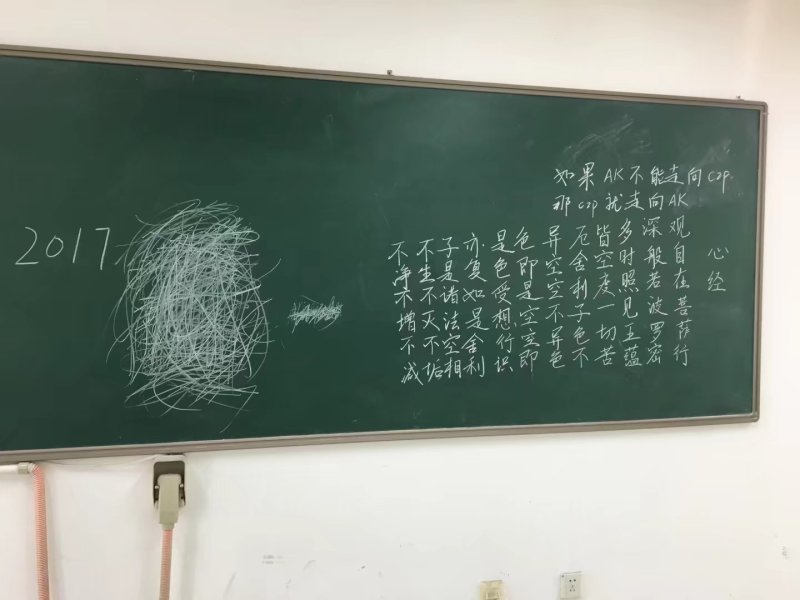 2017
如果AK不能走向czp
那czp就走向AK
心经
观自在菩萨行
深般若波罗密
多时照见五蕴
皆空度一切苦
厄舍利子色不
异空空不异色
色即是空空即
是色受想行识
亦复如是舍利
子是诸法空相
不生不灭不垢
不净不增不减